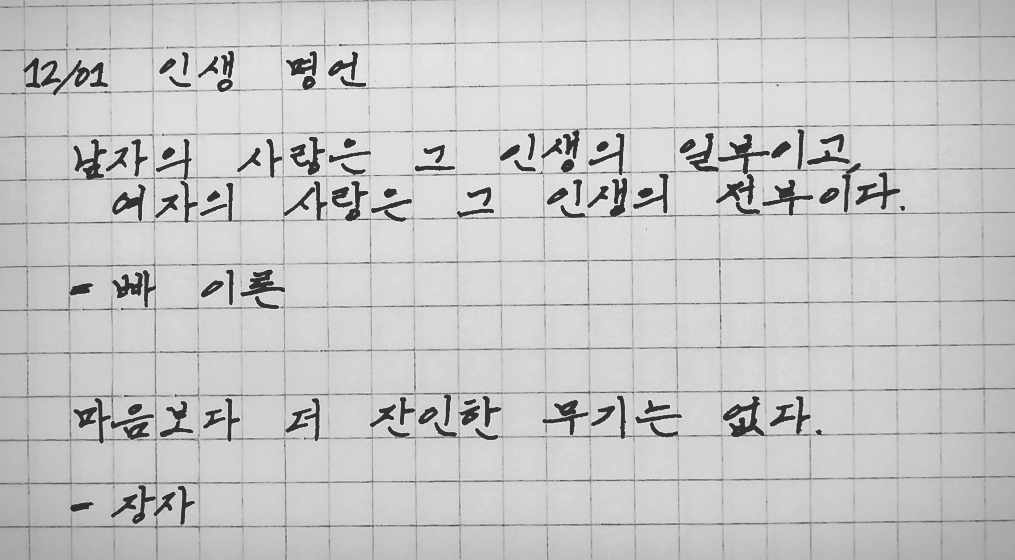 12/01 인생 명언
남자의 사랑은 그 인생의 일부이고,
여자의 사랑은 그 인생의 전부이다.
- 빠 이론
마음보다 더 잔인한 무기는 없다.
- 장자